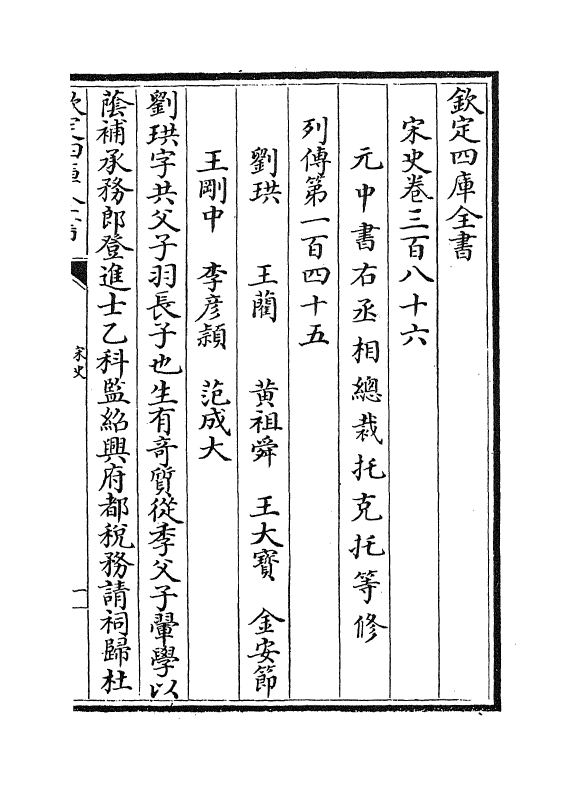 欽定四庫全書
宋史卷三百八十六
元中書右丞相總裁托克托等修
列傳第一百四十五
劉珙 王藺 黄祖舜 王大寶 金安節
王剛中 李彦穎 范成大
劉珙字共父子羽長子也生有竒質從季父子翬學以
蔭補承務郎登進士乙科監紹興府都稅務請祠歸杜
宋史
一